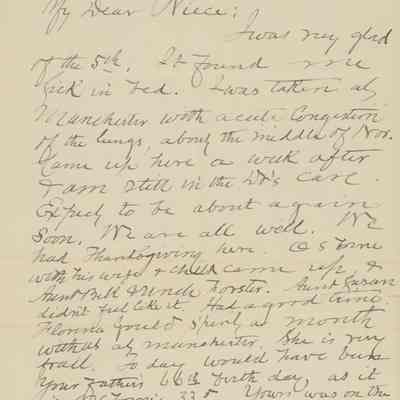 My Dear Niece;
I was very glad
of the 5th. It found me
sick in bed. I was taken at
Manchester with acute Congestion
of the lungs, about the middle of Nov.
Came up here a week after
& am still in the Dr's care.
Expect to be about again
soon. We are all well. We
had Thanksgiving here. O S
with his wife & child came up &
Aunt Bell & Uncle Forster. Aunt Susan
didn't feel like it. Had a good time.
a month
with us at Manchester. She is very
frail. To day would have been
Your Fathers 66th birth day as it
is 33d Yours was on the